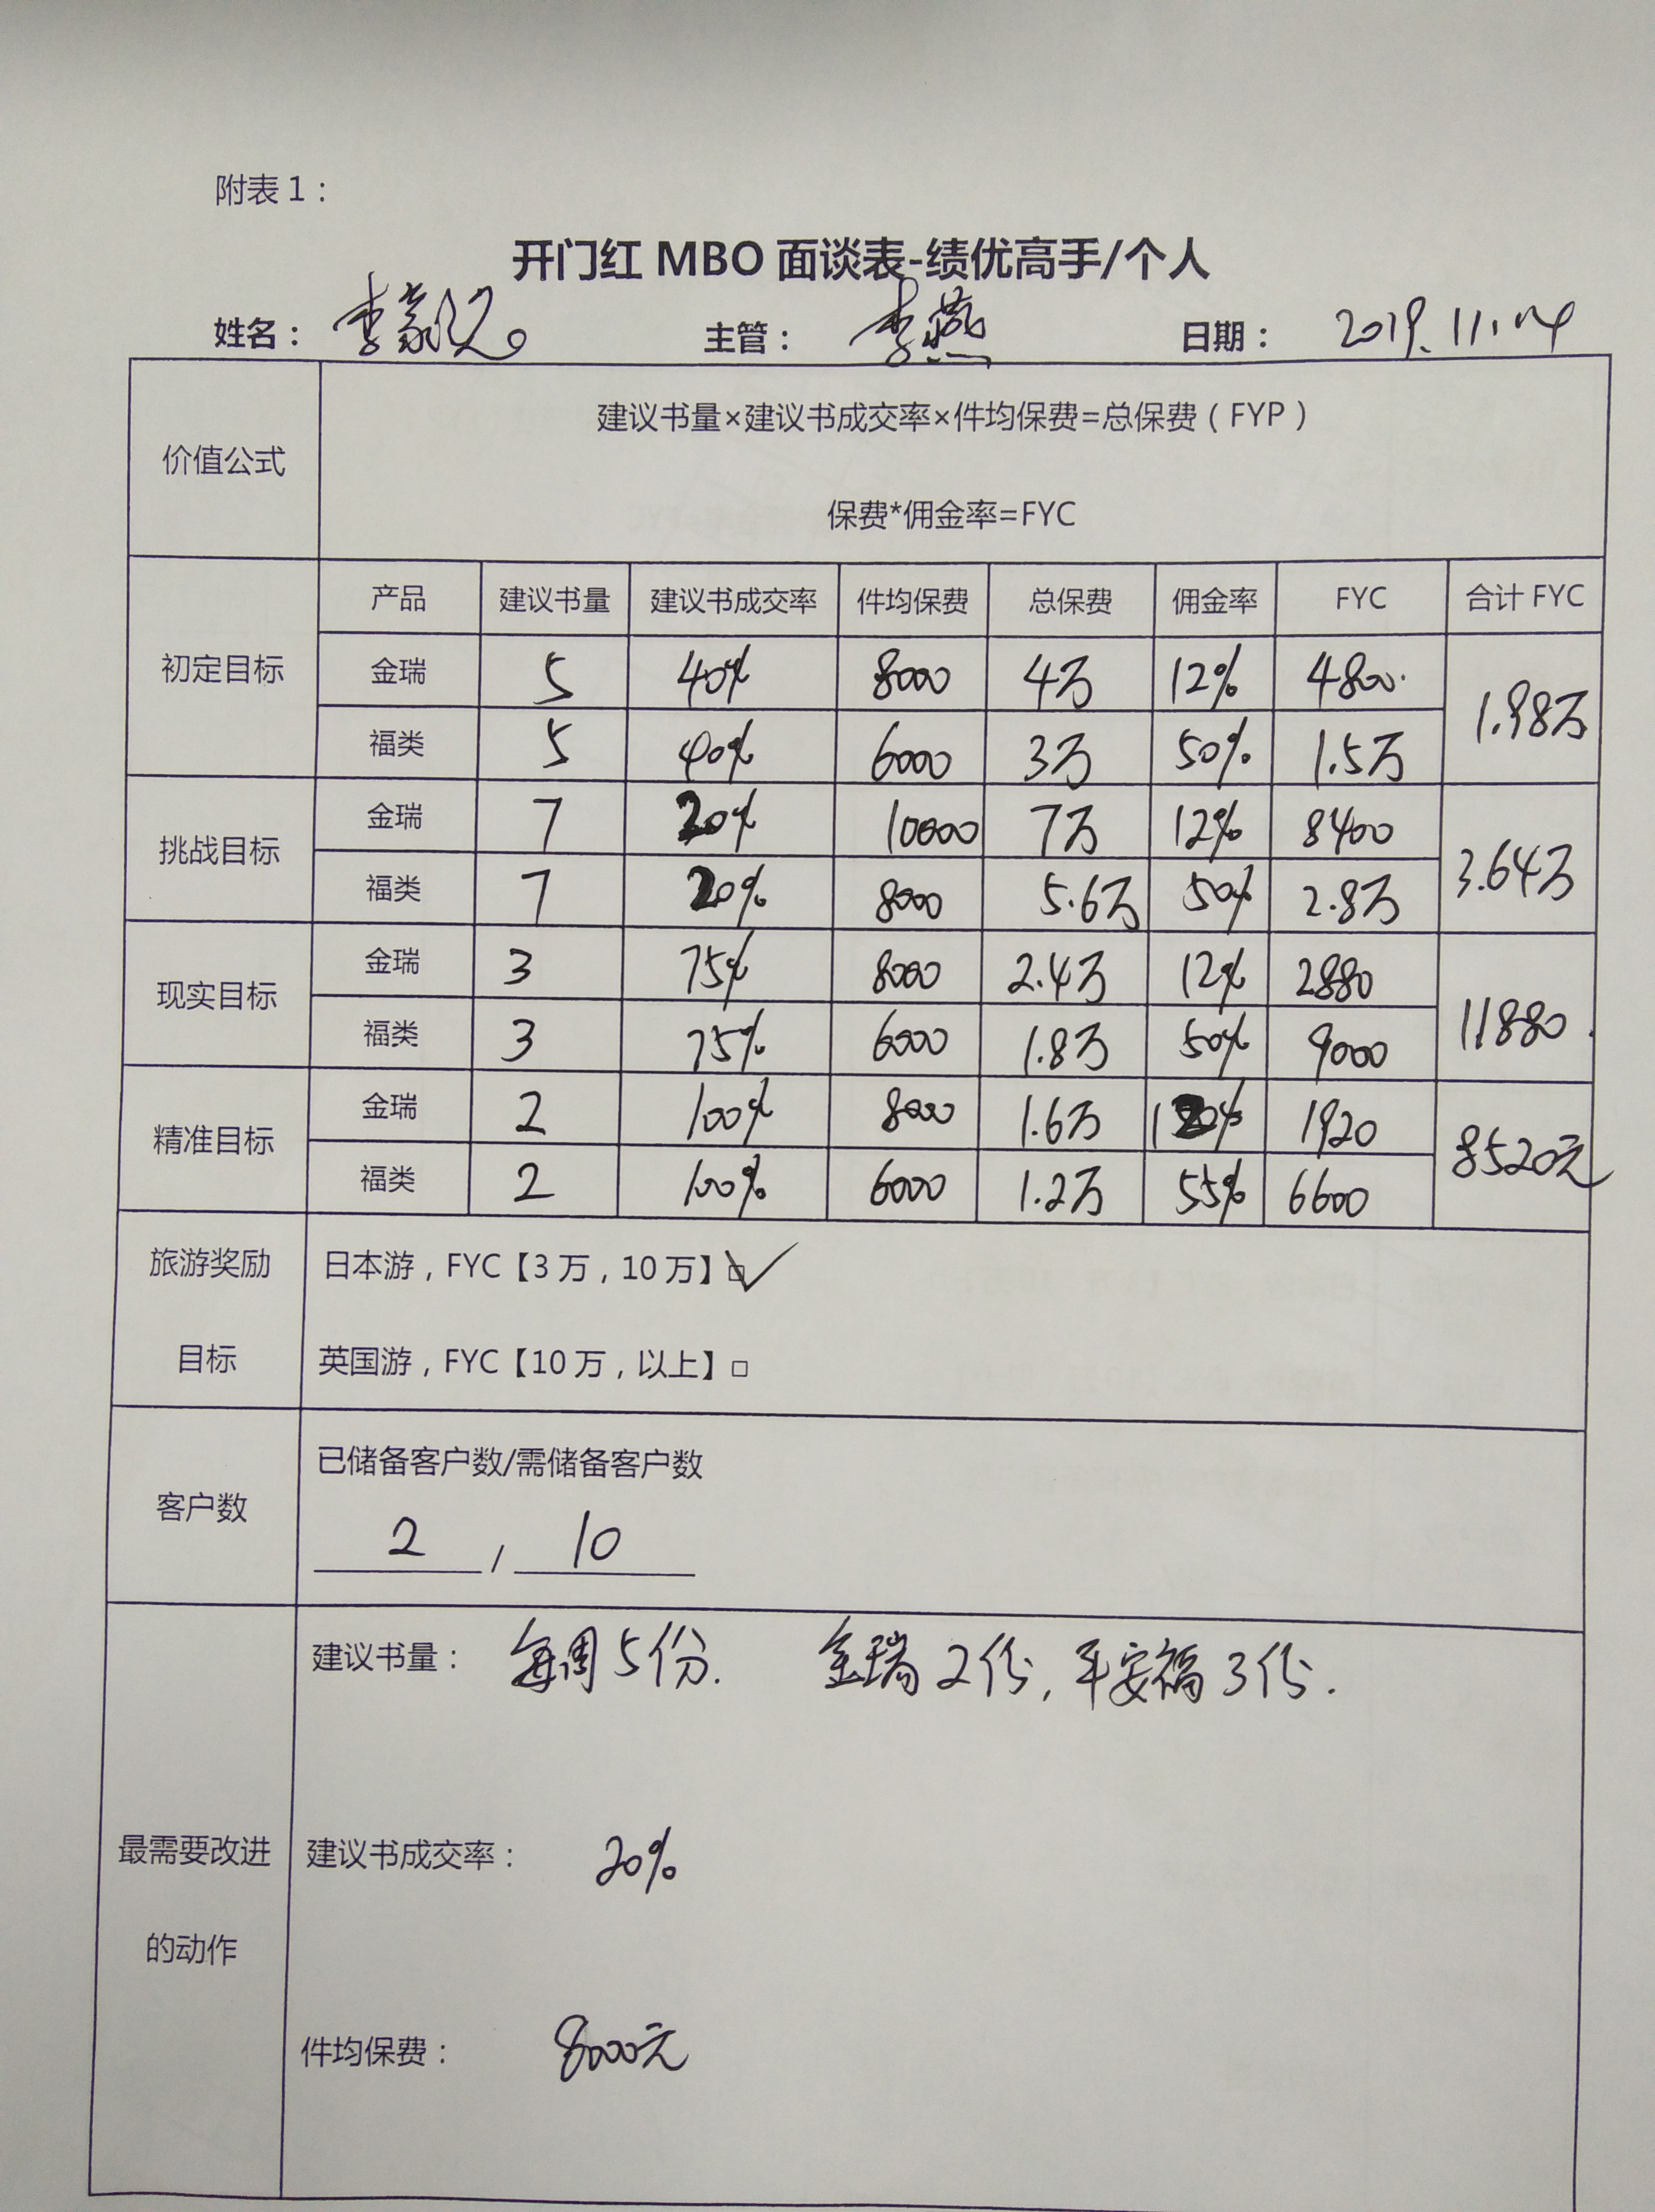 附表1：
开门红 MBO 面谈表-绩优高手/个人
姓名： 李 主管： 李燕 日期： 2019.11.14
价值公式
建议书量×建议书成交率×件均保费=总保费（FYP）
保费*佣金率=FYC
产品 建议书量 建议书成交率 件均保费 总保费 佣金率 FYC 合计 FYC
初定目标
金瑞 5 40% 8000 4万 12% 4800. 1.98万
福类 5 40% 6000 3万 50% 1.5万
挑战目标
金瑞 7 20% 10000 7万 12% 8400 3.64万
福类 7 20% 8000 5.6万 50% 2.8万
现实目标
金瑞 3 75% 8000 2.4万 12% 2880 11880.
福类 3 75% 6000 1.8万 50% 9000
精准目标
金瑞 2 100% 8000 1.6万 12% 1920 8520元
福类 2 100% 6000 1.2万 55% 6600
旅游奖励
目标
日本游，FYC【3万，10万】☑
英国游，FYC【10万，以上】□
客户数
已储备客户数/需储备客户数
2 / 10
最需要改进
的动作
建议书量： 每周5份. 金瑞2份, 平安福3份.
建议书成交率： 20%
件均保费： 8000元